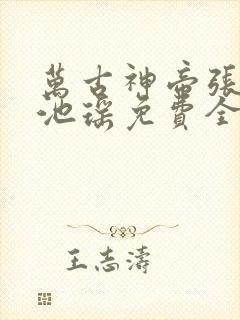 萬古神帝張
池瑤免費全
王志濤